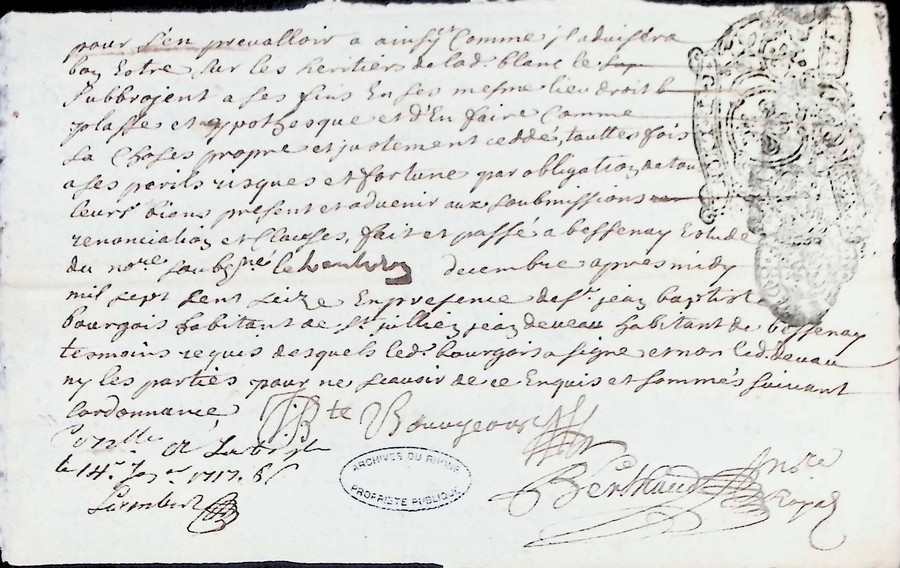 pour s'en prevalloir a ainsy comme j ladvisera
bon Estre sur les heritiers de lad. blanc le
subbrojent a ses fins En ses mesme lieu droit
plasse et ypothesque et d'En faire Comme
sa Choses propre et justement ceddé, touttes fois
a ses perils risques et fortune par obligation de tous
leurs biens present et advenir aux soubmissions
renonciation et Clauses, fait et passé a bessenay Estude
du no.re soubsne le decembre apres midy
mil sept sent seize En presence de s.r jean baptiste
bourgois habitant de st. jullien jean deveau habitant de bessenay
tesmoins requis desquels led. bourgois a signe et non led. deveau
ny les parties pour ne scavoir de ce Enquis et sommés suivant
Lordonnance
JB te Bourgeois
Co.nelle a
le 14.e 1717
Berthaud no.re Royal
ARCHIVES DU RHONE
PROPRIETE PUBLIQUE